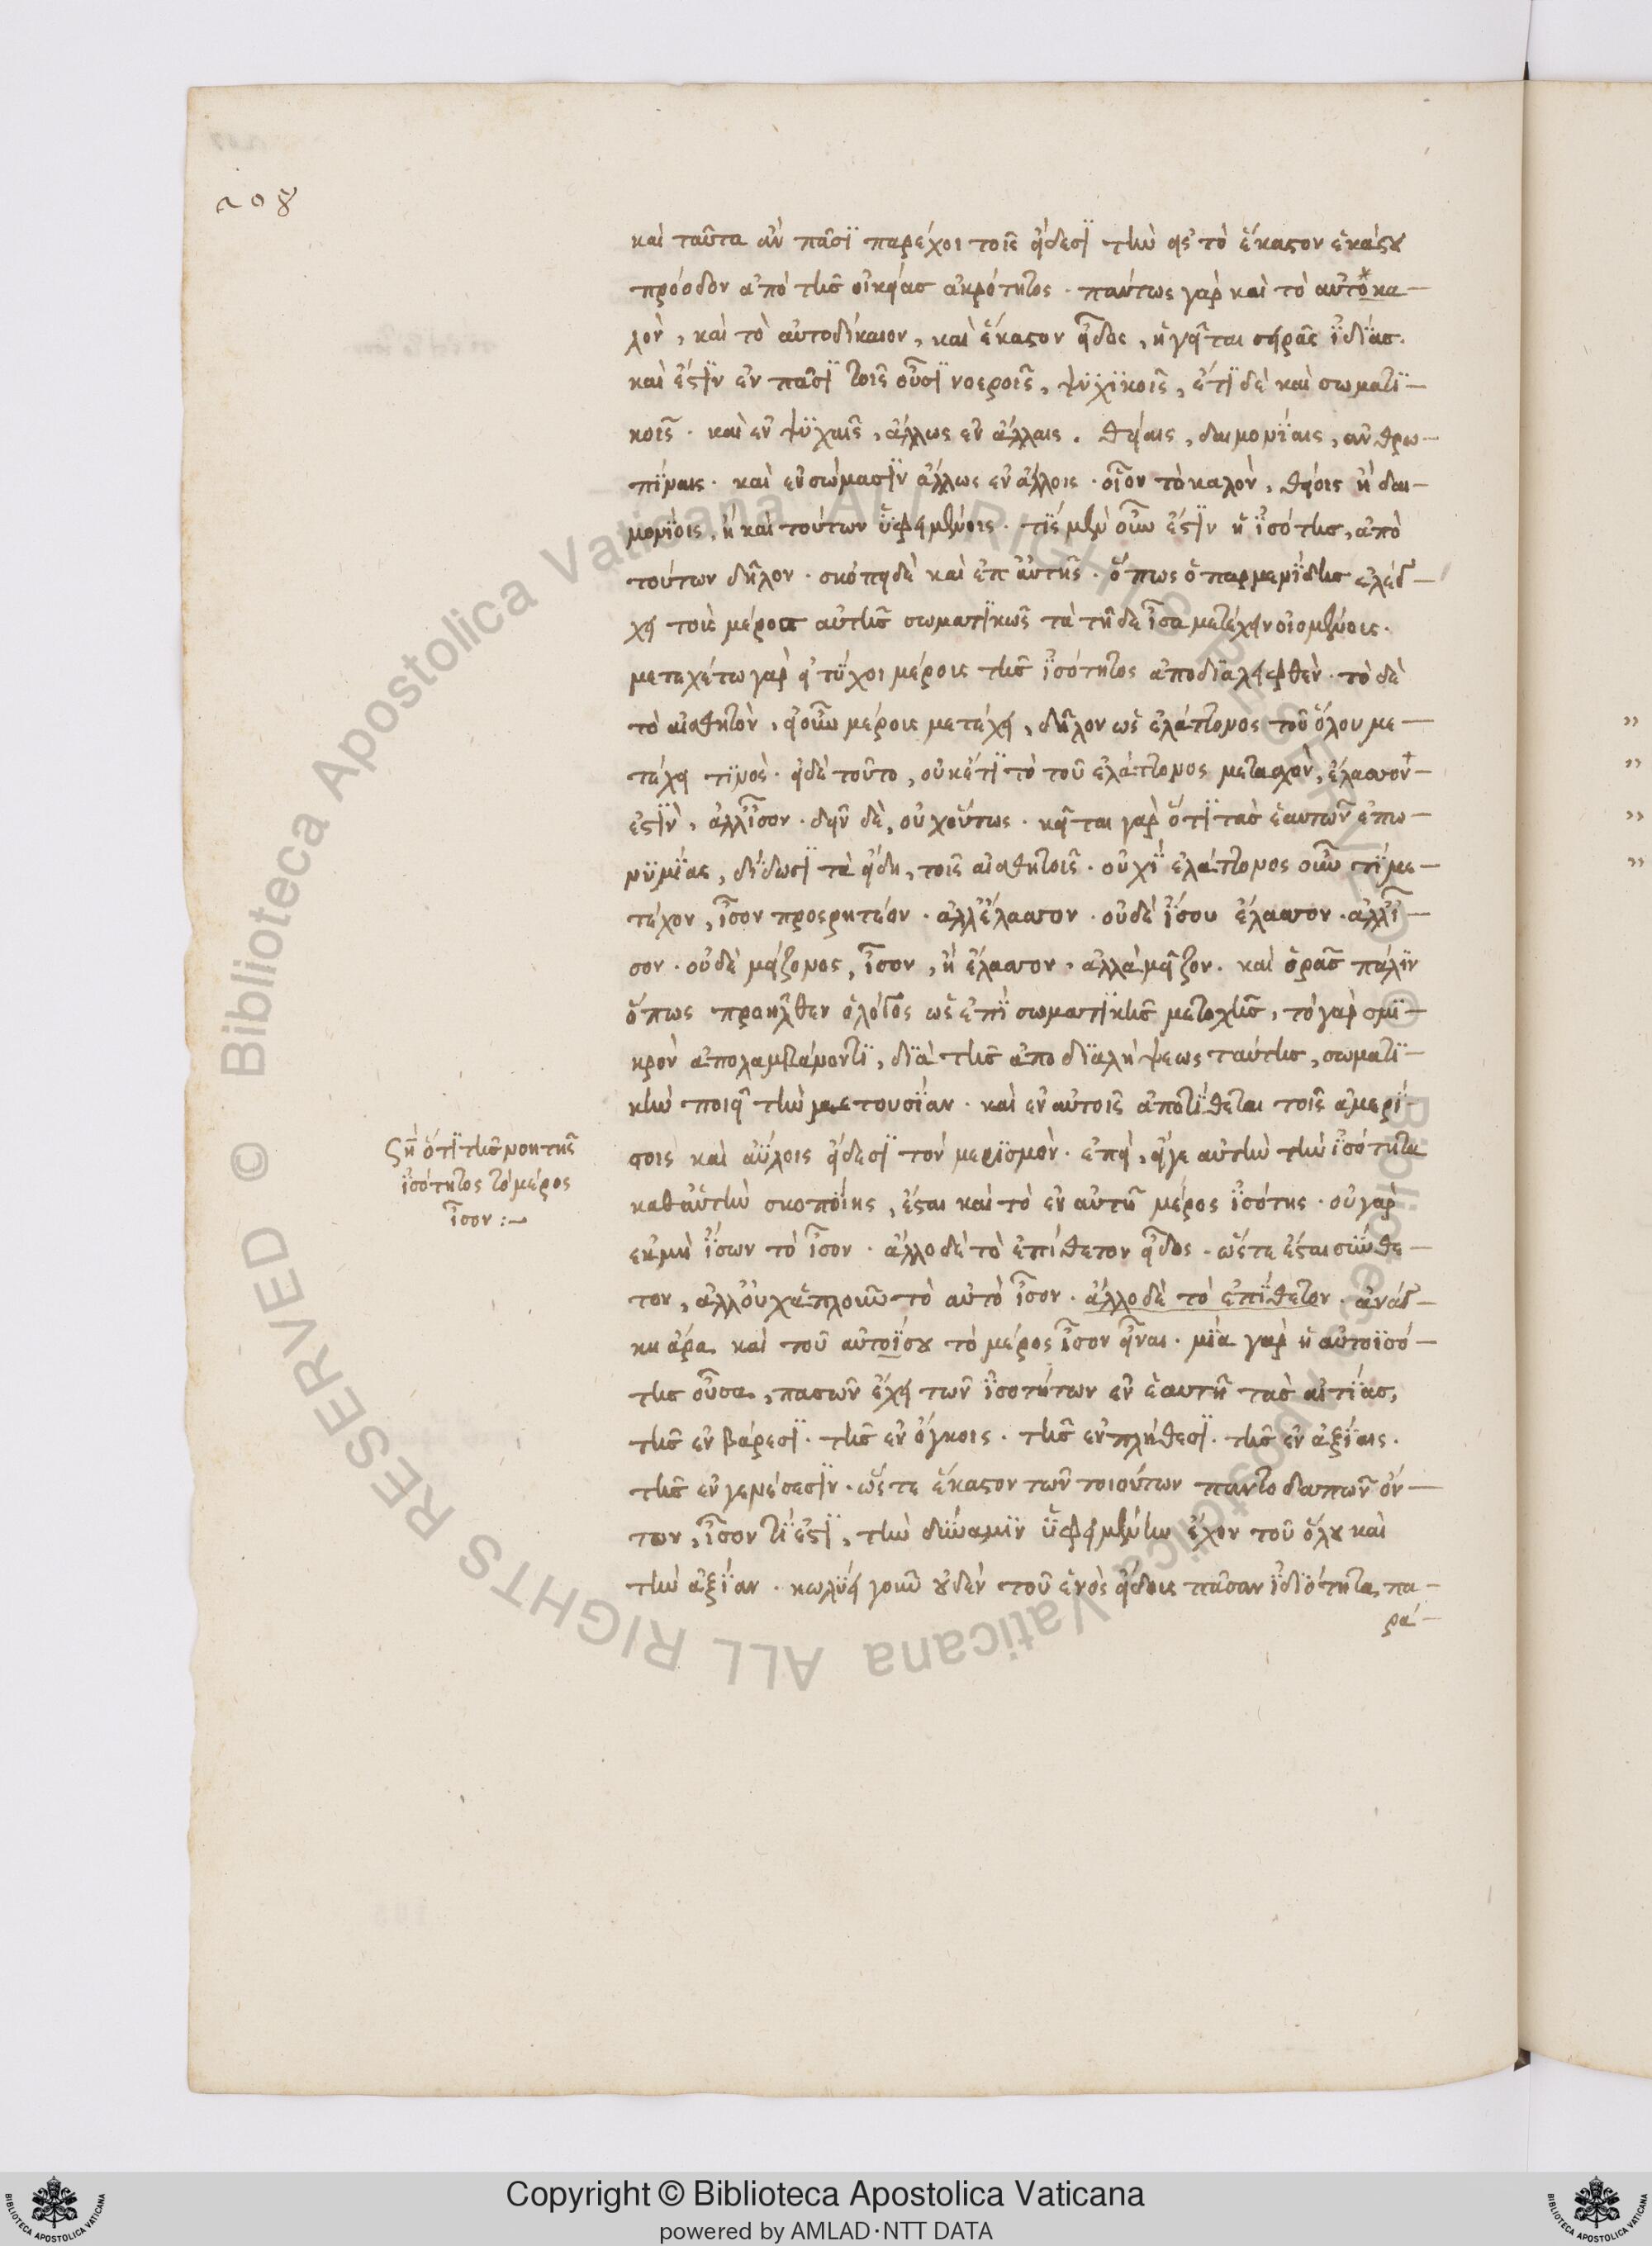 208
καὶ ταῦτα ἂν πᾶσϊ παρέχοι τοῖς εἴδεσϊ τὴν εἰς τὸ ἕκαστον ἑκάστου
πρόοδον ἀπὸ τῆς οἰκείας ἀκρότητος · πάντως γὰρ καὶ τὸ αὐτὸκα-
λὸν, καὶ τὸ αὐτοδίκαιον, καὶ ἕκαστον εἶδος, ἡγεῖται σειρᾶς ἰδίας.
καὶ ἔστϊν ἐν πᾶσϊ τοῖς οὖσϊ νοεροῖς, ψυχϊκοῖς, ἔτϊ δὲ καὶ σωματϊ-
κοῖς · καὶ ἐν ψυχαῖς, ἄλλως ἐν ἄλλαις. θείαις, δαιμονίαις, ἀνθρω-
πίναις · καὶ ἐν σώμασϊν ἄλλως ἐν ἄλλοις · οἷον τὸ καλὸν, θείοις ἢ δαι-
μονίοις, ἢ καὶ τούτων ὑφειμένοις · τίς μὲν οὖν ἐστϊν ἡ ἰσότης, ἀπὸ
τούτων δῆλον · σκόπει δὲ καὶ ἐπ αὐτῆς · ὅπως ὁ παρμενίδης ἐλέγ-
χει τοῖς μέρεσι αὐτῆς σωματϊκῶς τὰ τῇδε ἶσα μετέχειν οἰομένοις.
μετεχέτω γὰρ εἰ τύχοι μέρους τῆς ἰσότητος ἀποδϊαληφθέν · τὸ δὲ
τὸ αἰσθητὸν, εἰ οὖν μέρους μετέχει, δῆλον ὡς ἐλάττονος τοῦ ὅλου με-
τέχει τϊνὸς · εἰ δὲ τοῦτο, οὐκέτϊ τὸ τοῦ ἐλάττονος μετασχὸν, ἔλασσον+-
ἐστϊν, ἀλλ ἶσον · δεῖν δὲ, οὐχ οὕτως · κεῖται γὰρ ὅτϊ τὰς ἑαυτῶν ἐπω-
νυμίας, δίδωσϊ τὰ εἴδη, τοῖς αἰσθητοῖς · οὐχὶ ἐλάττονος οὖν τὶ με-
τέχον, ἶσον προσρητέον · ἀλλ ἔλασσον · οὐδὲ ἴσου ἔλασσον · ἀλλ ἶ-
σον · οὐδὲ μείζονος, ἶσον, ἢ ἔλασσον, ἀλλὰ μεῖζον · καὶ ὁρᾷς πάλϊν
ὅπως προῆλθεν ὁ λόγος ὡς ἐπὶ σωματϊκῆς μετοχῆς, τὸ γὰρ σμϊ-
κρὸν ἀπολαμβάνοντϊ, δϊὰ τῆς ἀποδϊαλήψεως ταύτης, σωματϊ-
κὴν ποιεῖ τὴν μετουσίαν · καὶ ἐν αὐτοῖς ἀποτίθεται τοῖς ἀμερί-
στοις καὶ ἀΰλοις εἴδεσϊ τὸν μερϊσμὸν · ἐπεὶ, εἴγε αὐτὴν τὴν ἰσότητα
καθ αὑτὴν σκοποίης, ἔσται καὶ τὸ ἐν αὐτῇ μέρος ἰσότης · οὐ γὰρ
ἐκ μὴ ἴσων τὸ ἶσον · ἄλλο δὲ τὸ ἐπίθετον εἶδος · ὥστε ἔσται σύνθε-
τον, ἀλλ οὐχ ἁπλοῦν τὸ αὐτὸ ἶσον · ἄλλο δὲ τὸ ἐπίθετον · ἀνάγ-
κη ἄρα καὶ τοῦ αὐτοΐσου τὸ μέρος ἶσον εἶναι · μία γὰρ ἡ αὐτοϊσό-
της οὖσα, πασῶν ἔχει τῶν ἰσοτήτων ἐν ἑαυτῇ τὰς αἰτίας,
τῆς ἐν βάρεσϊ · τῆς ἐν ὄγκοις · τῆς ἐν πλήθεσϊ · τῆς ἐν ἀξίαις.
τῆς ἐν γενέσεσϊν · ὥστε ἕκαστον τῶν τοιούτων παντοδαπῶν ὄν-
των, ἶσον τί ἐστϊ, τὴν δύναμϊν ὑφειμένην ἔχον τοῦ ὅλου καὶ
τὴν ἀξίαν · κωλύει γοῦν οὐδὲν τοῦ ἑνὸς εἴδους πᾶσαν ἰδϊότητα, πα-
ρά-
ση ὅτϊ τῆς νοητῆς
ἰσότητος τὸ μέρος
ἶσον :~